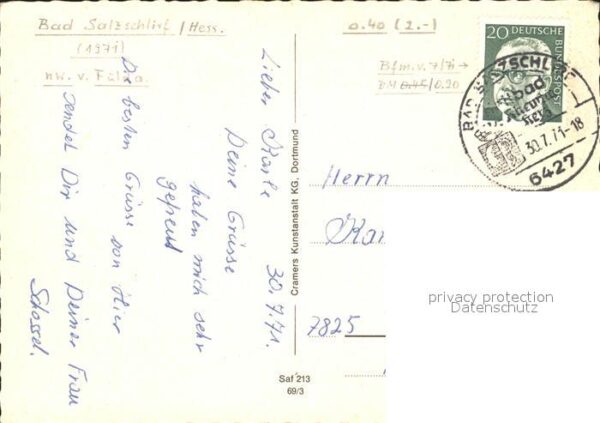 Bad Salzschlirf / Hess.
(1971)
nw. v. Fulda
0.40 (2.-)
Bfm. v. 7/71 →
DM 0.45/0.20
20 DEUTSCHE BUNDESPOST
BAD SALZSCHLIRF
30.7.71-18
6427
Lieber Karle 30.7.71.
Deine Grüsse
haben mich sehr
gefreut
Die besten Grüsse von Hier
sendet Dir und Deiner Frau
Cramers Kunstanstalt KG, Dortmund
Saf 213
69/3
Herrn
Kar
7825
privacy protection
Datenschutz